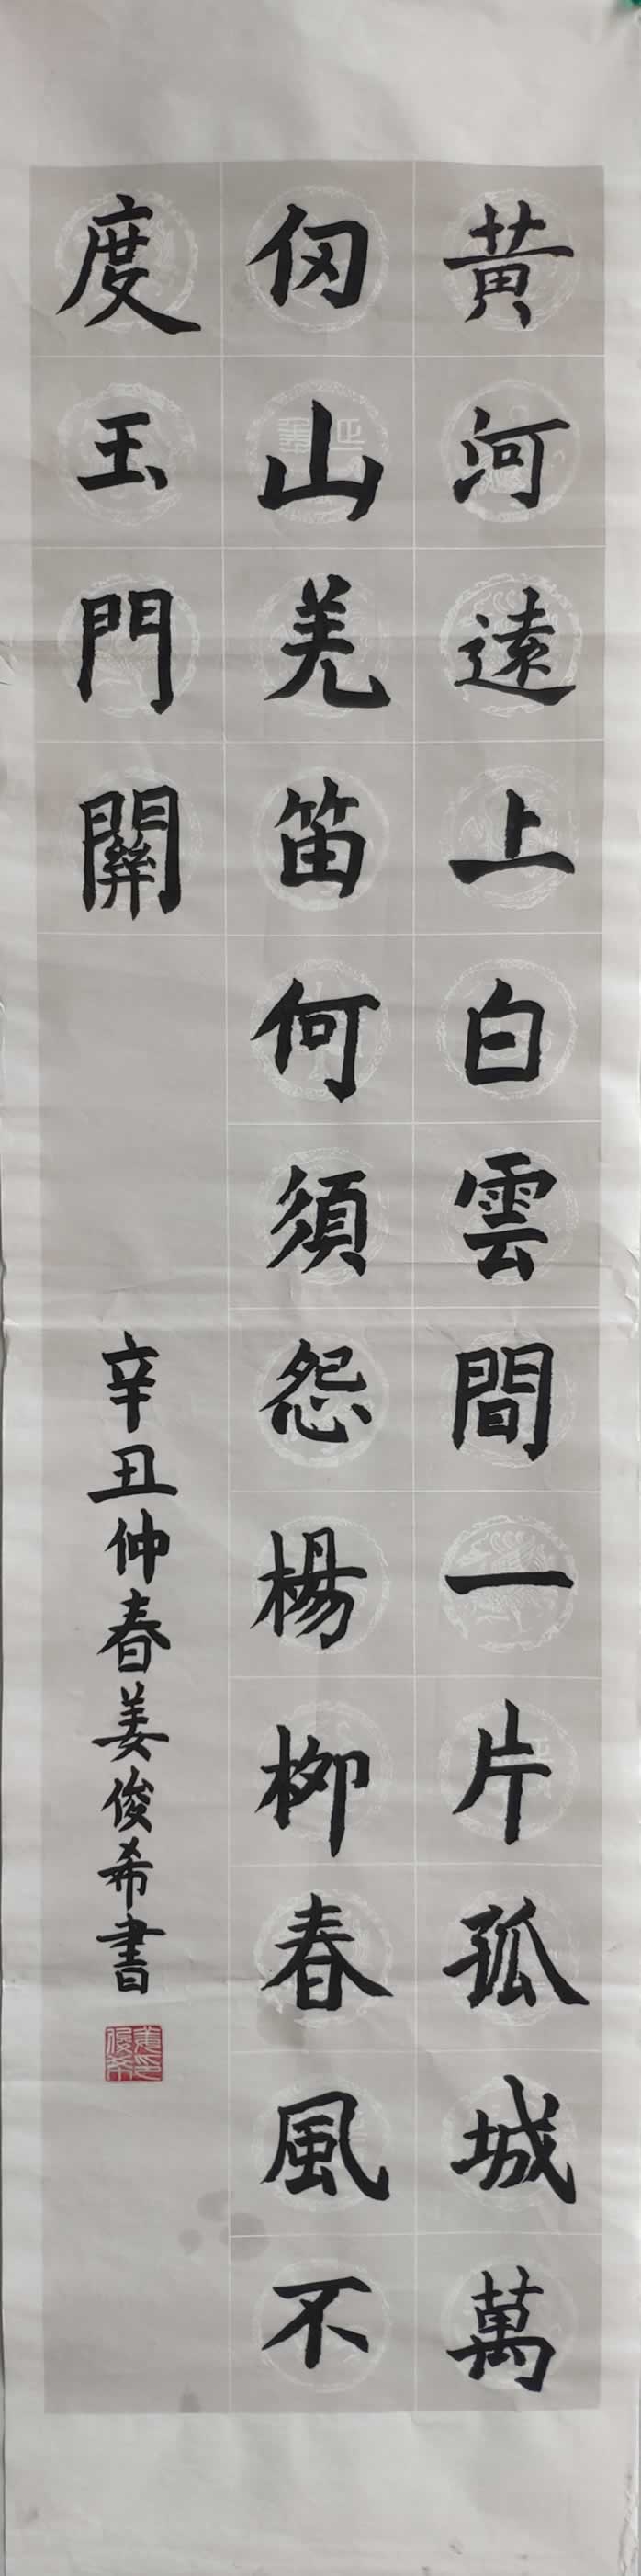 黄河遠上白雲間一片孤城萬
仞山羌笛何須怨楊柳春風不
度玉門關
辛丑仲春姜俊希書